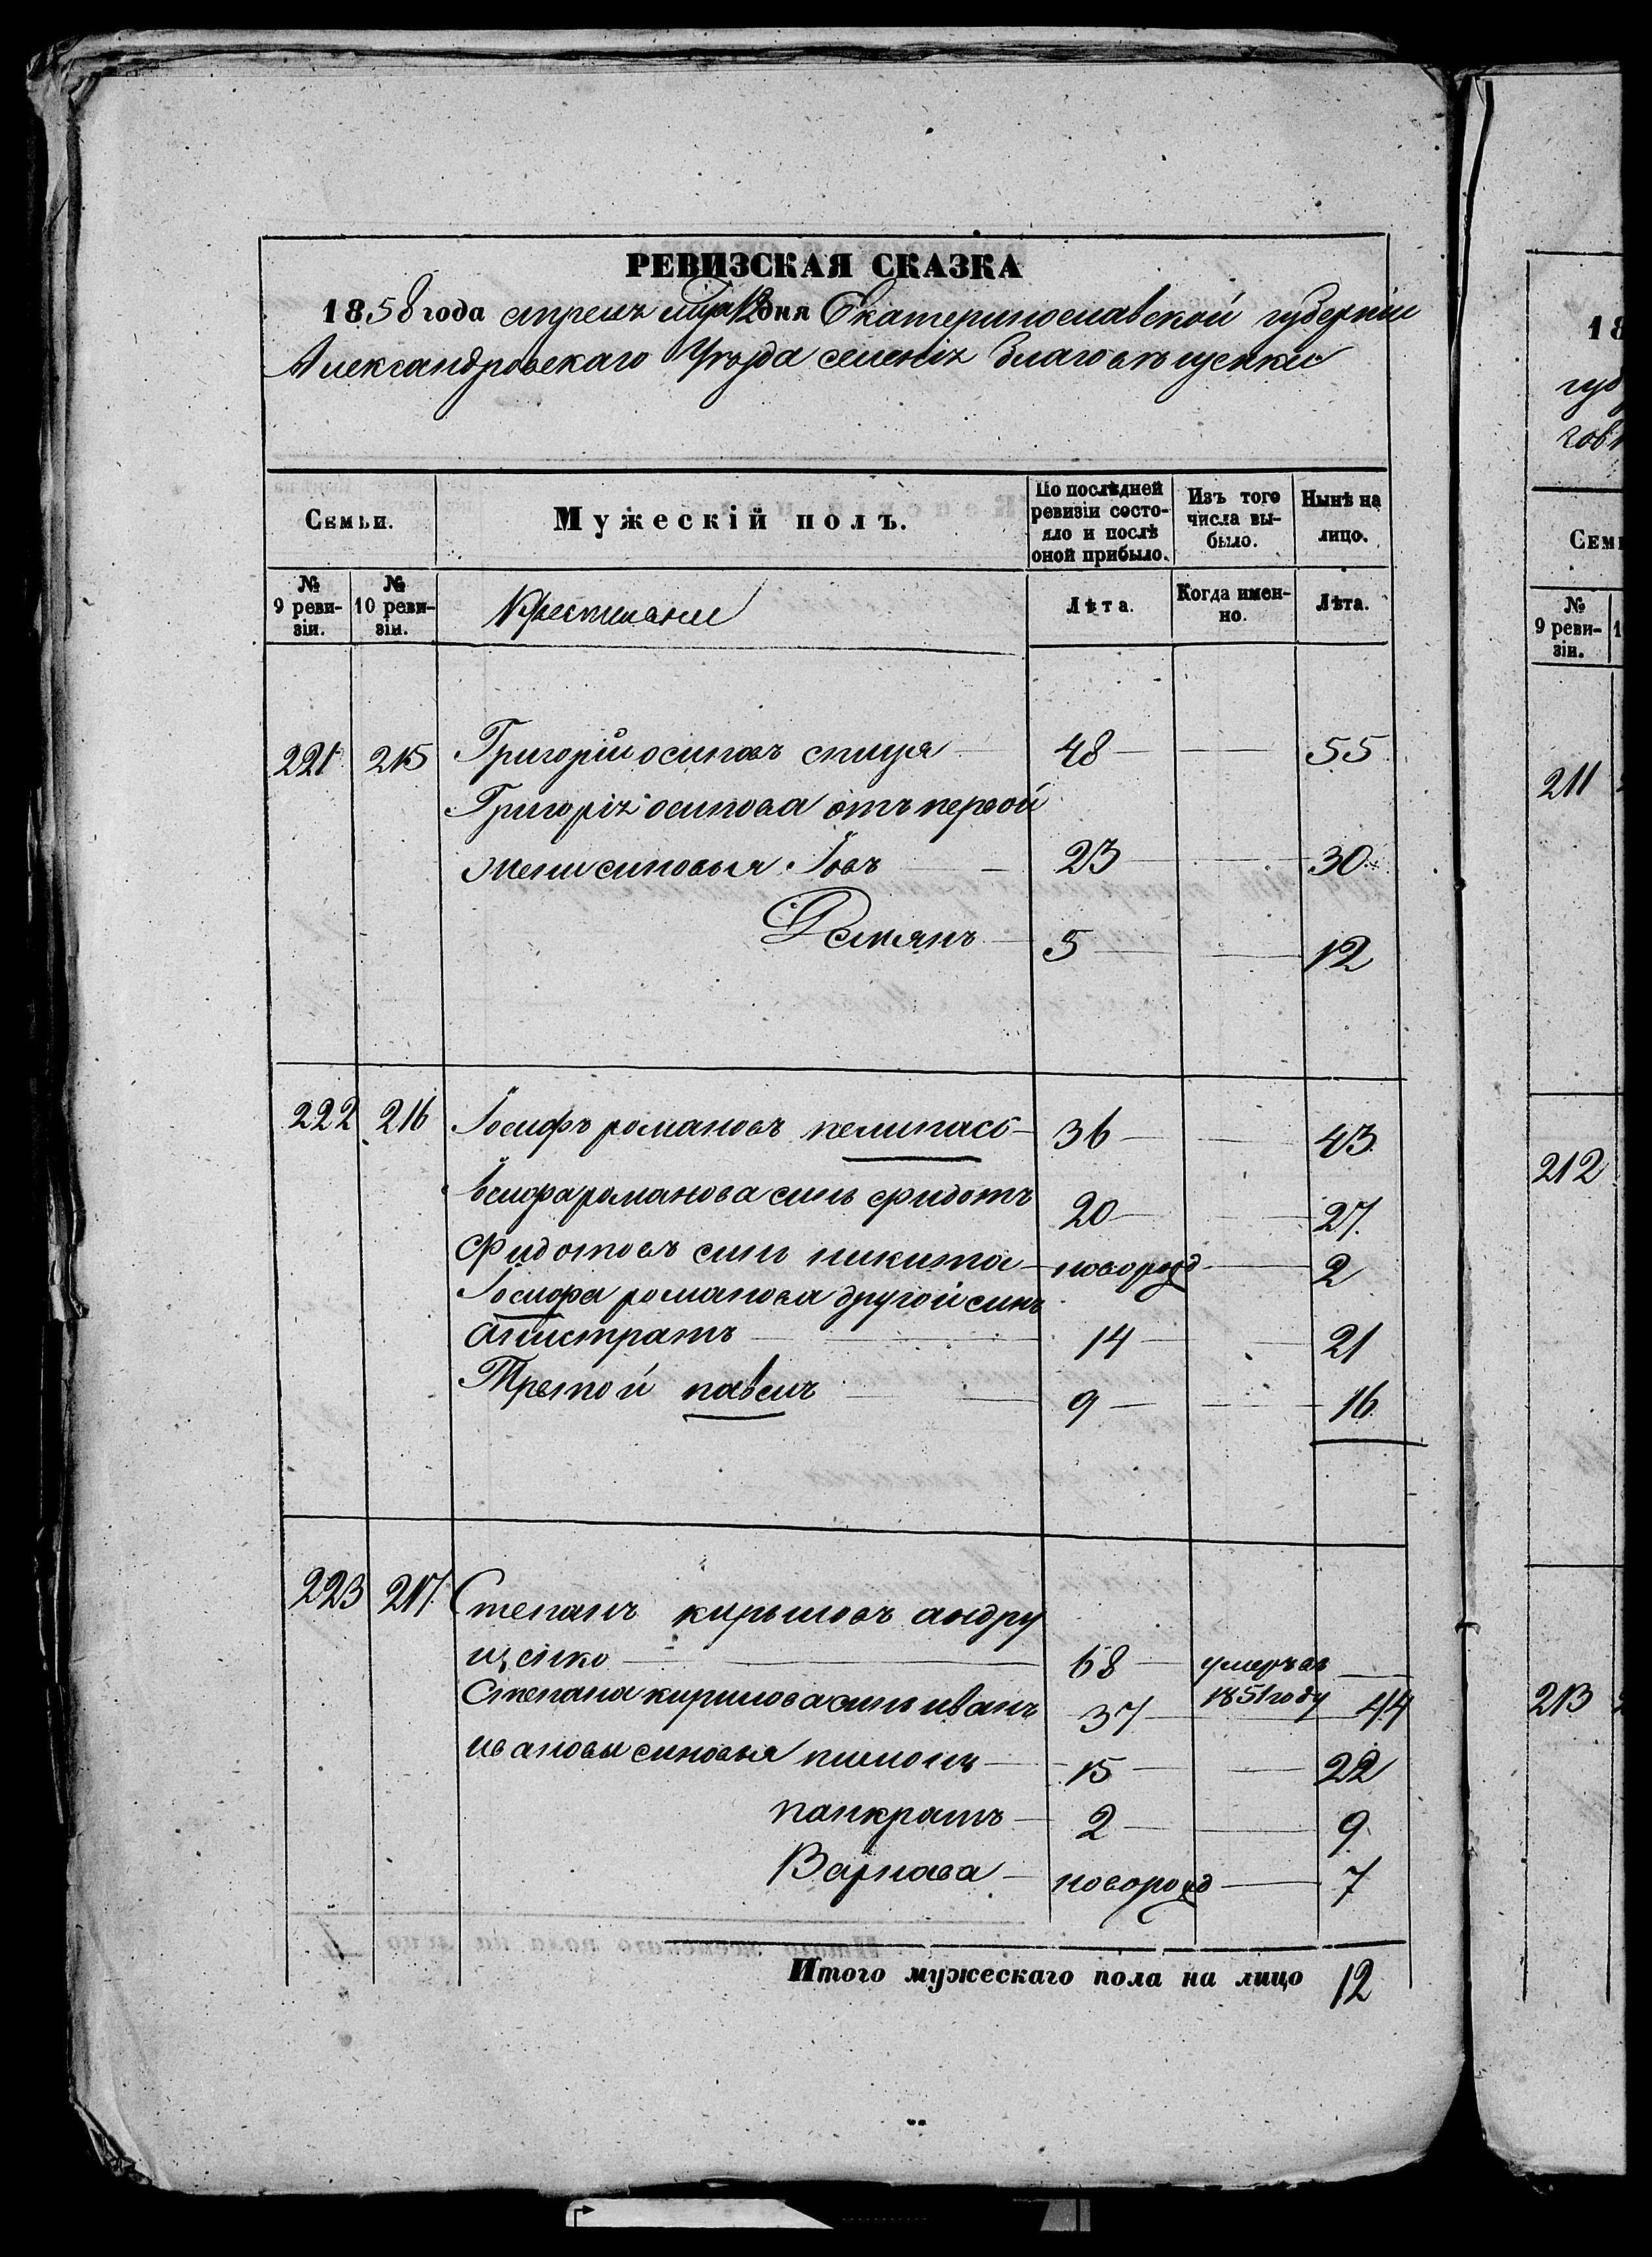 РЕВИЗСКАЯ СКАЗКА
1858 года апреля 12 дня Екатеринославской губерніи
Александровскаго Уѣзда селенія Благовѣщенки
Семьи.
Мужескій полъ.
По послѣдней ревизіи состояло и послѣ оной прибыло.
Изъ того числа выбыло.
Нынѣ на лицо.
№ 9 ревизіи.
№ 10 ревизіи.
Крестьяне
Лѣта.
Когда именно.
Лѣта.
221 215 Григорій осиповъ спица 48 55
Григорія осипова отъ первой
жени синовья Іовъ 23 30
Демянъ 5 12
222 216 Іосифъ романовъ пелипасъ 36 43
Іосифа романова синъ фидотъ 20 27
Фидотовъ синъ никита новорожд 2
Іосифа романова другой синъ
агистратъ 14 21
Третой павелъ 9 16
223 217 Степанъ кирыловъ андру
щенко 68 умеръ въ
1851 году
Степана кирилова синъ иванъ 37 44
ивановы синовья пилипъ 15 22
панкратъ 2 9
Варнава новорожд 7
Итого мужескаго пола на лицо 12
18
губ
гов
Сем
№ 9 ревизіи.
1
211
212
213